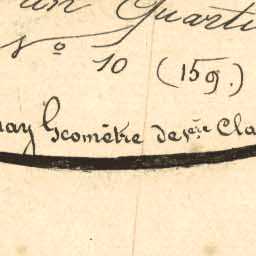 un Quarti
N.º 10 (159.)
nay Géomètre de 1ère Cla